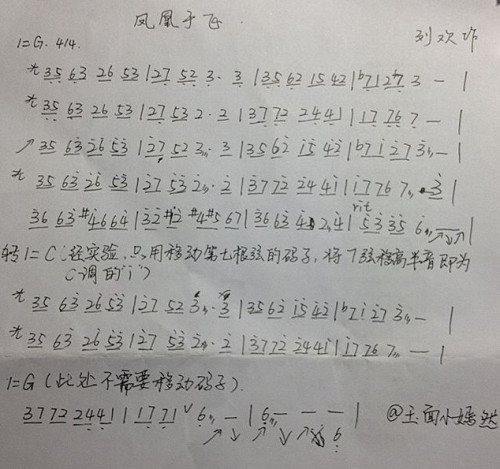 凤凰于飞.
刘欢作
1=G. 4/4.
* 35 63 26 53 | 27 52 3. 3 | 35 62 15 42 | b7 1 27 3 — |
* 35 63 26 53 | 27 53 2. 2 | 37 72 24 41 | 17 76 7 — |
↗ 35 63 26 53 | 27 52 3. 3 | 35 62 15 42 | b7 1 27 3 — |
* 35 63 26 53 | 27 53 2. 2 | 37 72 24 41 | 17 76 7. 3 |
rit
36 63 #4664 | 32 #12 #4#5 67 | 36 63 4. 2 4 | 53 35 6
转 1=C (经实验,只用移动第七根弦的码子,将7弦移高半音即为
C调的"i")
* 35 63 26 53 | 27 52 3. 3 | 35 62 15 42 | b7 1 27 3 — |
* 35 63 26 53 | 27 53 2. 2 | 37 72 24 41 | 17 76 7 — |
1=G (此处不需要移动码子).
37 72 244 1 | 1 17 71 ∨ 6 — | 6 — — — |
6
@玉面小嫣然